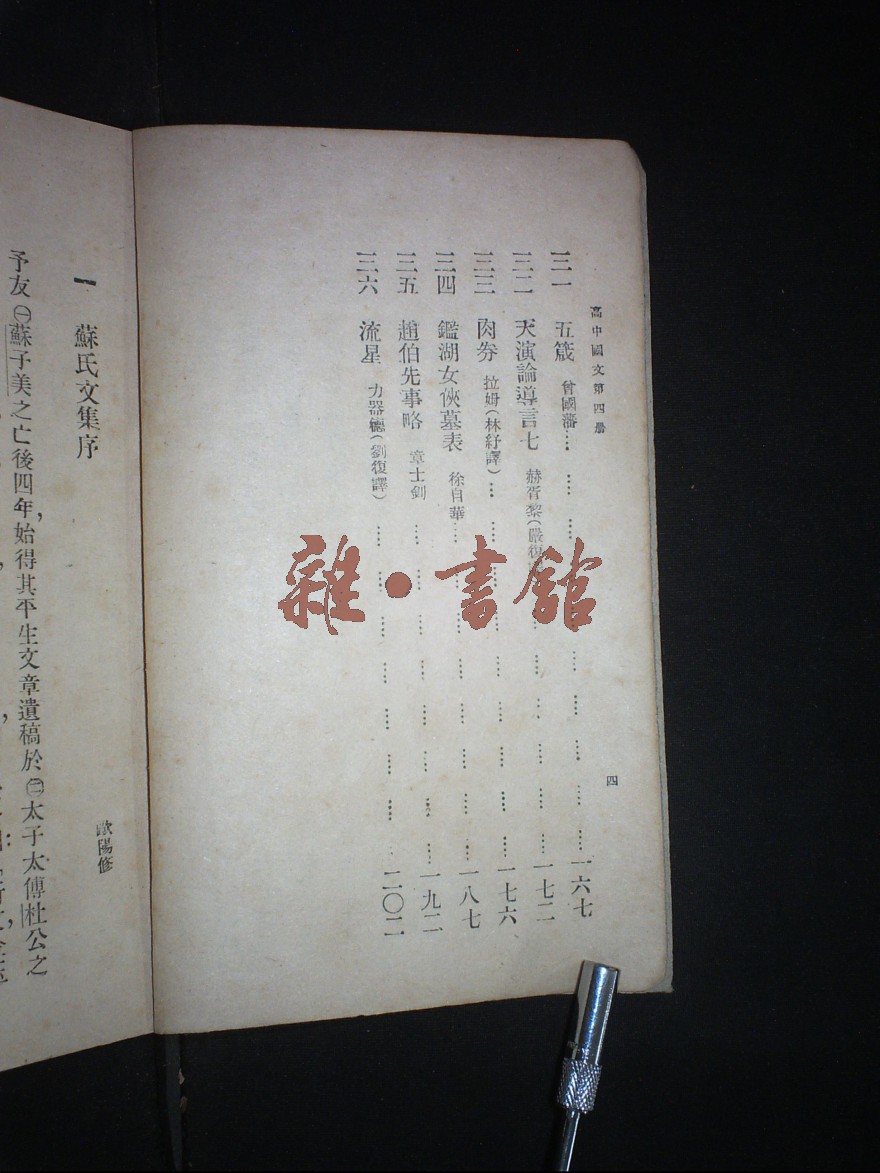 高中國文第四册
四
三一 五箴 曾國藩………一六七
三二 天演論導言七 赫胥黎(嚴復………一七二
三三 肉券 拉姆(林紓譯)………一七六
三四 鑑湖女俠墓表 徐自華………一八七
三五 趙伯先事略 章士釗………一九二
三六 流星 力器德(劉復譯)………二〇二
雜·書館
一 蘇氏文集序
歐陽修
予友㊀蘇子美之亡後四年，始得其平生文章遺稿於㊁太子太傅杜公之